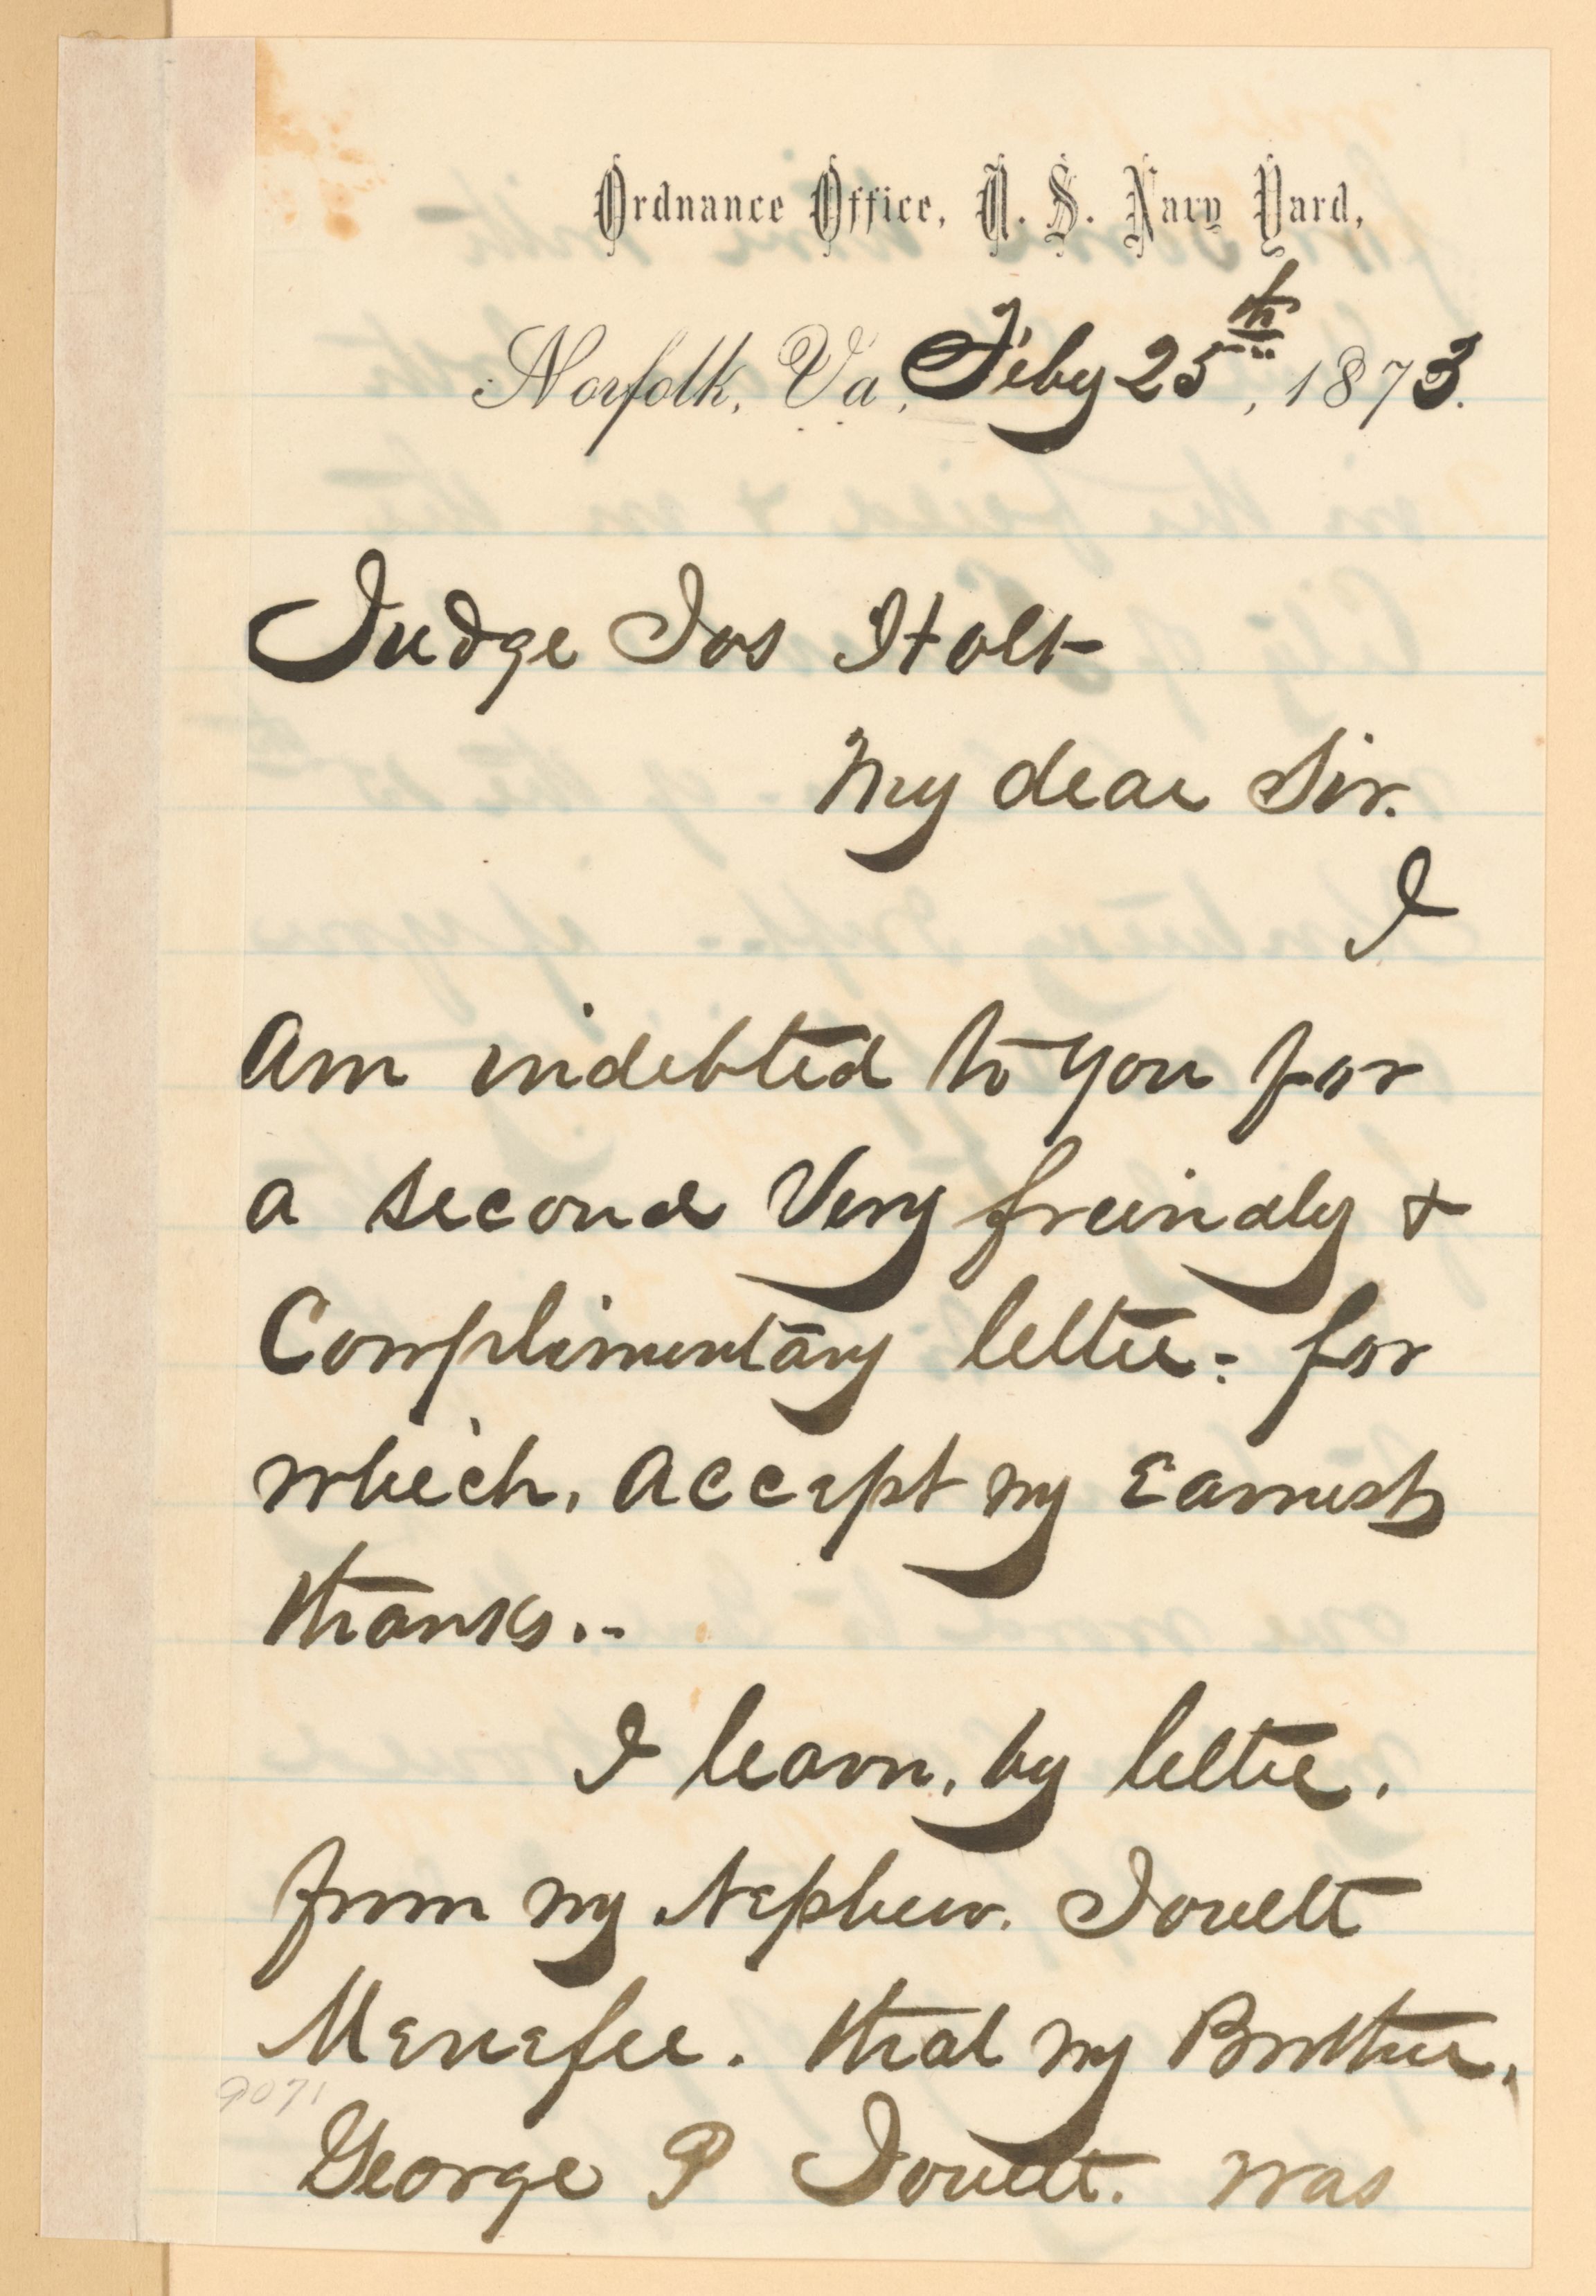 Ordnance Office, U. S. Navy Yard,
Norfolk, Va, Feby 25th, 1873.
Judge Jos Holt
My dear Sir.
I
Am indebted to you for
a second Very freindly +
Complimentary letter: for
which, Accept my Earnest
thanks..
I learn, by letter.
from my Nephew. Jouett
Menefee. that my Brother,
9071
George P Jouett. was